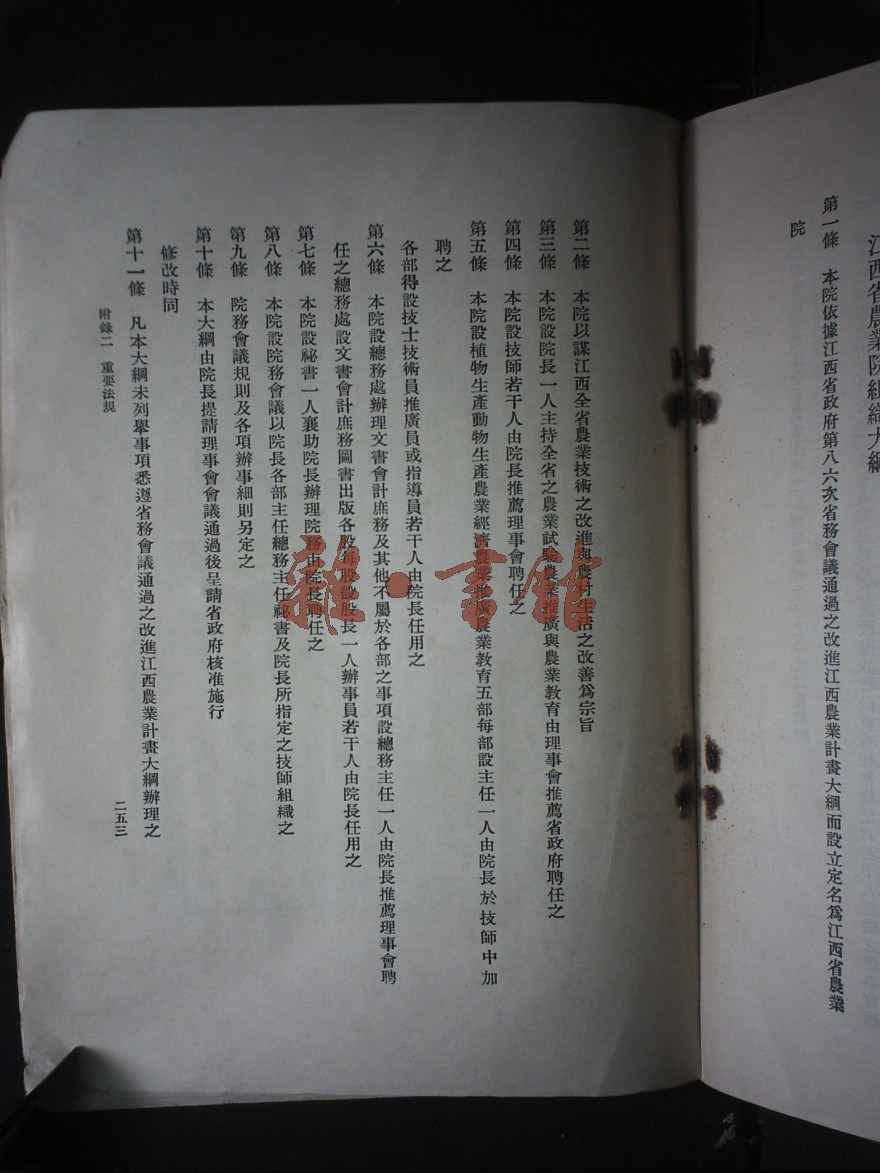 江西省農業院組織大綱
第一條　本院依據江西省政府第八六次省務會議通過之改進江西農業計畫大綱而設立定名爲江西省農業
院
第二條　本院以謀江西全省農業技術之改進與農村生活之改善爲宗旨
第三條　本院設院長一人主持全省之農業試驗農業推廣與農業教育由理事會推薦省政府聘任之
第四條　本院設技師若干人由院長推薦理事會聘任之
第五條　本院設植物生產動物生產農業經濟農業推廣農業教育五部每部設主任一人由院長於技師中加
聘之
各部得設技士技術員推廣員或指導員若干人由院長任用之
第六條　本院設總務處辦理文書會計庶務及其他不屬於各部之事項設總務主任一人由院長推薦理事會聘
任之總務處設文書會計庶務圖書出版各股每股設股長一人辦事員若干人由院長任用之
第七條　本院設祕書一人襄助院長辦理院務由院長聘任之
第八條　本院設院務會議以院長各部主任總務主任祕書及院長所指定之技師組織之
第九條　院務會議規則及各項辦事細則另定之
第十條　本大綱由院長提請理事會會議通過後呈請省政府核准施行
修改時同
第十一條　凡本大綱未列舉事項悉遵省務會議通過之改進江西農業計畫大綱辦理之
附錄二　重要法規
二五三
雜·書館